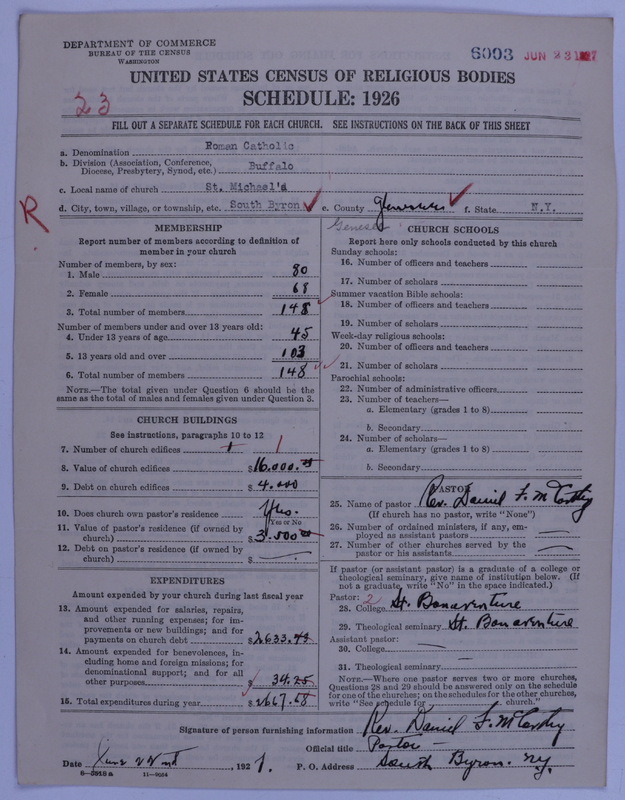 DEPARTMENT OF COMMERCE
BUREAU OF THE CENSUS
WASHINGTON
6093 JUN 23 1927
UNITED STATES CENSUS OF RELIGIOUS BODIES
SCHEDULE: 1926
23
FILL OUT A SEPARATE SCHEDULE FOR EACH CHURCH. SEE INSTRUCTIONS ON THE BACK OF THIS SHEET
a. Denomination Roman Catholic
b. Division (Association, Conference, Diocese, Presbytery, Synod, etc.) Buffalo
c. Local name of church St. Michael's
d. City, town, village, or township, etc. South Byron e. County Genesee f. State N.Y.
R
Genesee
MEMBERSHIP
Report number of members according to definition of
member in your church
Number of members, by sex:
1. Male 80
2. Female 68
3. Total number of members 148
Number of members under and over 13 years old:
4. Under 13 years of age 45
5. 13 years old and over 103
6. Total number of members 148
NOTE.—The total given under Question 6 should be
same as the total of males and females given under Question 3.
CHURCH BUILDINGS
See instructions, paragraphs 10 to 12
7. Number of church edifices 1 1
8. Value of church edifices $16.000.00
9. Debt on church edifices $4.000
10. Does church own pastor's residence Yes.
Yes or No
11. Value of pastor's residence (if owned by
church) $3.500 00
12. Debt on pastor's residence (if owned by
church) $
EXPENDITURES
Amount expended by your church during last fiscal year
13. Amount expended for salaries, repairs,
and other running expenses; for im-
provements or new buildings; and for
payments on church debt $2633.43
14. Amount expended for benevolences, in-
cluding home and foreign missions; for
denominational support; and for all
other purposes $34.25
15. Total expenditures during year $2667.68
CHURCH SCHOOLS
Report here only schools conducted by this church
Sunday schools:
16. Number of officers and teachers
17. Number of scholars
Summer vacation Bible schools:
18. Number of officers and teachers
19. Number of scholars
Week-day religious schools:
20. Number of officers and teachers
21. Number of scholars
Parochial schools:
22. Number of administrative officers
23. Number of teachers—
a. Elementary (grades 1 to 8)
b. Secondary
24. Number of scholars—
a. Elementary (grades 1 to 8)
b. Secondary
PASTOR
25. Name of pastor Rev. Daniel F. McCarthy
(If church has no pastor, write "None")
26. Number of ordained ministers, if any, em-
ployed as assistant pastors
27. Number of other churches served by the
pastor or his assistants
If pastor (or assistant pastor) is a graduate of a college or
theological seminary, give name of institution below. (If
not a graduate, write "No" in the space indicated.)
Pastor: 2
28. College St. Bonaventure
29. Theological seminary St. Bonaventure
Assistant pastor:
30. College
31. Theological seminary
NOTE.—Where one pastor serves two or more churches,
Questions 28 and 29 should be answered only on the schedule
for one of the churches; on the schedules for the other churches,
write "See schedule for church."
Signature of person furnishing information Rev. Daniel F. McCarthy
Official title Pastor
Date June 22nd, 1927. P. O. Address South Byron. N.Y.
8—5810a 11—9034